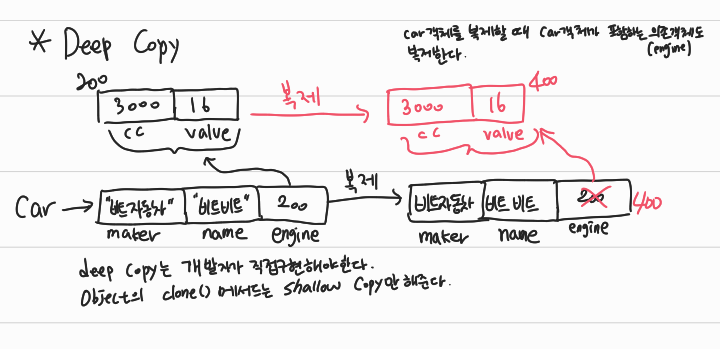 * Deep Copy
Car객체를 복제할 때 Car객체가 포함하는 의존객체도
복제한다. (engine)
200
3000 16
cc value
복제
400
3000 16
cc value
Car → "비트자동차" "비트비트" 200
maker name engine
복제
비트자동차 비트 비트 200 400
maker name engine
deep copy는 개발자가 직접구현해야한다.
Object의 clone() 메서드는 shallow copy만 해준다.